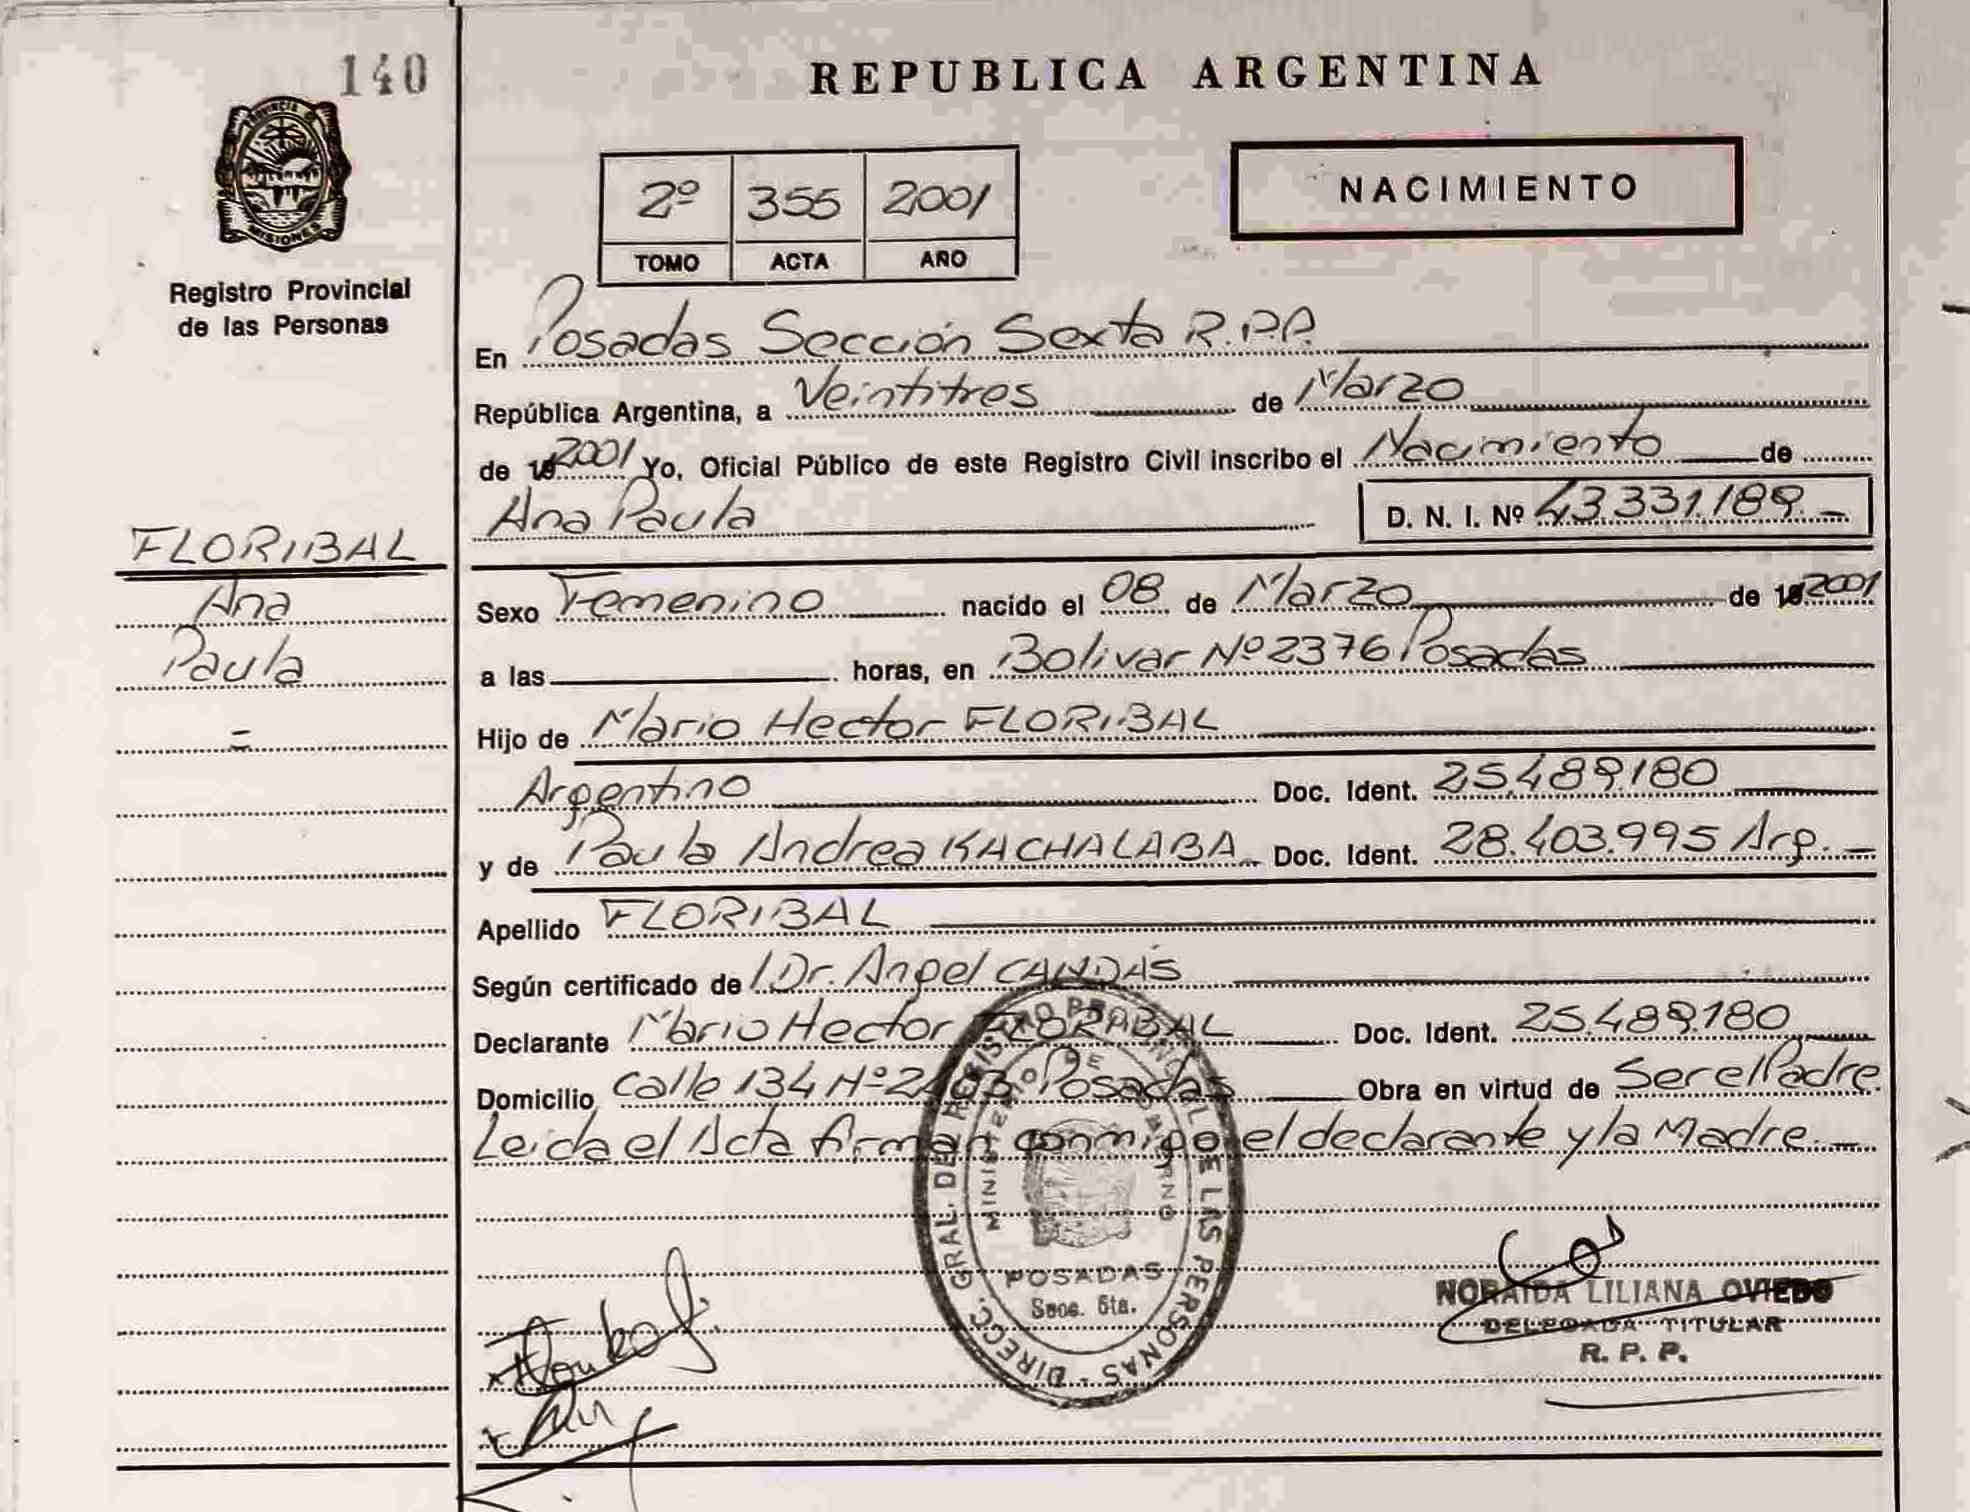 140
REPUBLICA ARGENTINA
PROVINCIA DE
MISIONES
Registro Provincial
de las Personas
2º 355 2001
TOMO ACTA AÑO
NACIMIENTO
En Posadas Sección Sexta R.P.P.
República Argentina, a Veintitres de Marzo
de 19 2001 Yo, Oficial Público de este Registro Civil inscribo el Nacimiento de
Ana Paula D. N. I. Nº 43.331.189.-
FLORIBAL
Ana
Paula
=
Sexo Femenino nacido el 08 de Marzo de 19 2001
a las horas, en Bolivar Nº 2376 Posadas
Hijo de Mario Hector FLORIBAL
Argentino Doc. Ident. 25.489.180
y de Paula Andrea KACHALABA Doc. Ident. 28.403.995 Arg.-
Apellido FLORIBAL
Según certificado de Dr. Angel CANDÁS
Declarante Mario Hector FLORABAL Doc. Ident. 25.489.180
Domicilio calle 134 Nº Posadas Obra en virtud de Ser el Padre
Leida el Acta firman conmigo el declarante y la Madre.-
DIRECC. GRAL. DEL REGISTRO PROVINCIAL DE LAS PERSONAS -
MINISTERIO DE GOBIERNO
POSADAS
Secc. 6ta.
NORAIDA LILIANA OVIEDO
DELEGADA TITULAR
R. P. P.